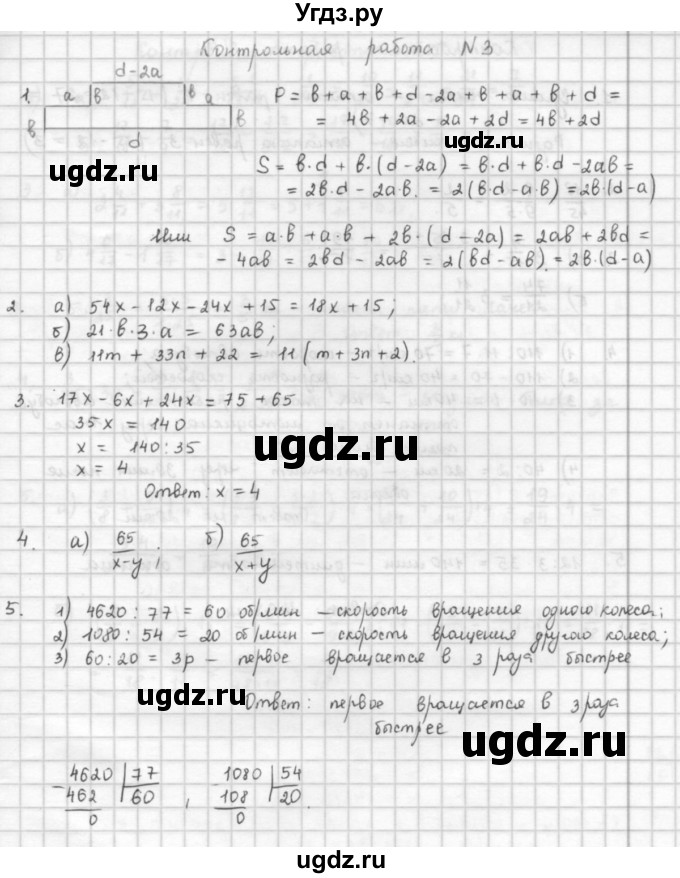 Угдз.ру
Контрольная работа N 3
d-2a
1. a в в a P = в + a + в + d - 2a + в + a + в + d =
в d в = 4в + 2a - 2a + 2d = 4в + 2d
ugdz.ru
S = в·d + в·(d - 2a) = в·d + в·d - 2aв =
= 2в·d - 2a·в. = 2(в·d - a·в) = 2в·(d-a)
Или S = a·в + a·в + 2в·(d - 2a) = 2aв + 2вd =
- 4aв = 2вd - 2aв = 2(вd - aв). = 2в·(d-a)
ugdz.ru
2. а) 54x - 12x - 24x + 15 = 18x + 15;
б) 21·в·3·a = 63aв;
в) 11m + 33n + 22 = 11(m + 3n + 2).
3. 17x - 6x + 24x = 75 + 65
35x = 140
x = 140 : 35
x = 4
ugdz.ru
Ответ: x = 4
4. а) 65/x-y; б) 65/x+y
5. 1) 4620 : 77 = 60 об/мин – скорость вращения одного колеса;
2) 1080 : 54 = 20 об/мин – скорость вращения другого колеса;
3) 60 : 20 = 3р – первое вращается в 3 раза быстрее
ugdz.ru
Ответ: первое вращается в 3 раза
быстрее
ugdz.ru
4620 77 , 1080 54
462 60 108 20.
0 0
ugdz.ru
ugdz.ru